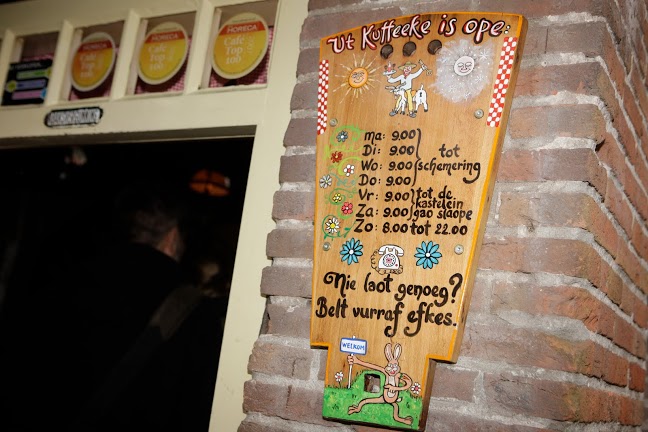 Ut Kuffeeke is ope:
HORECA
Café
Top
100
HORECA
Café
Top
100
HORECA
Café
Top
100
ma: 9.00
Di: 9.00
Wo: 9.00
Do: 9.00
tot
schemering
Vr: 9.00
Za: 9.00
tot de
kastelein
gao slaope
Zo: 8.00 tot 22.00
Nie laot genoeg?
Belt vurraf efkes.
WELKOM